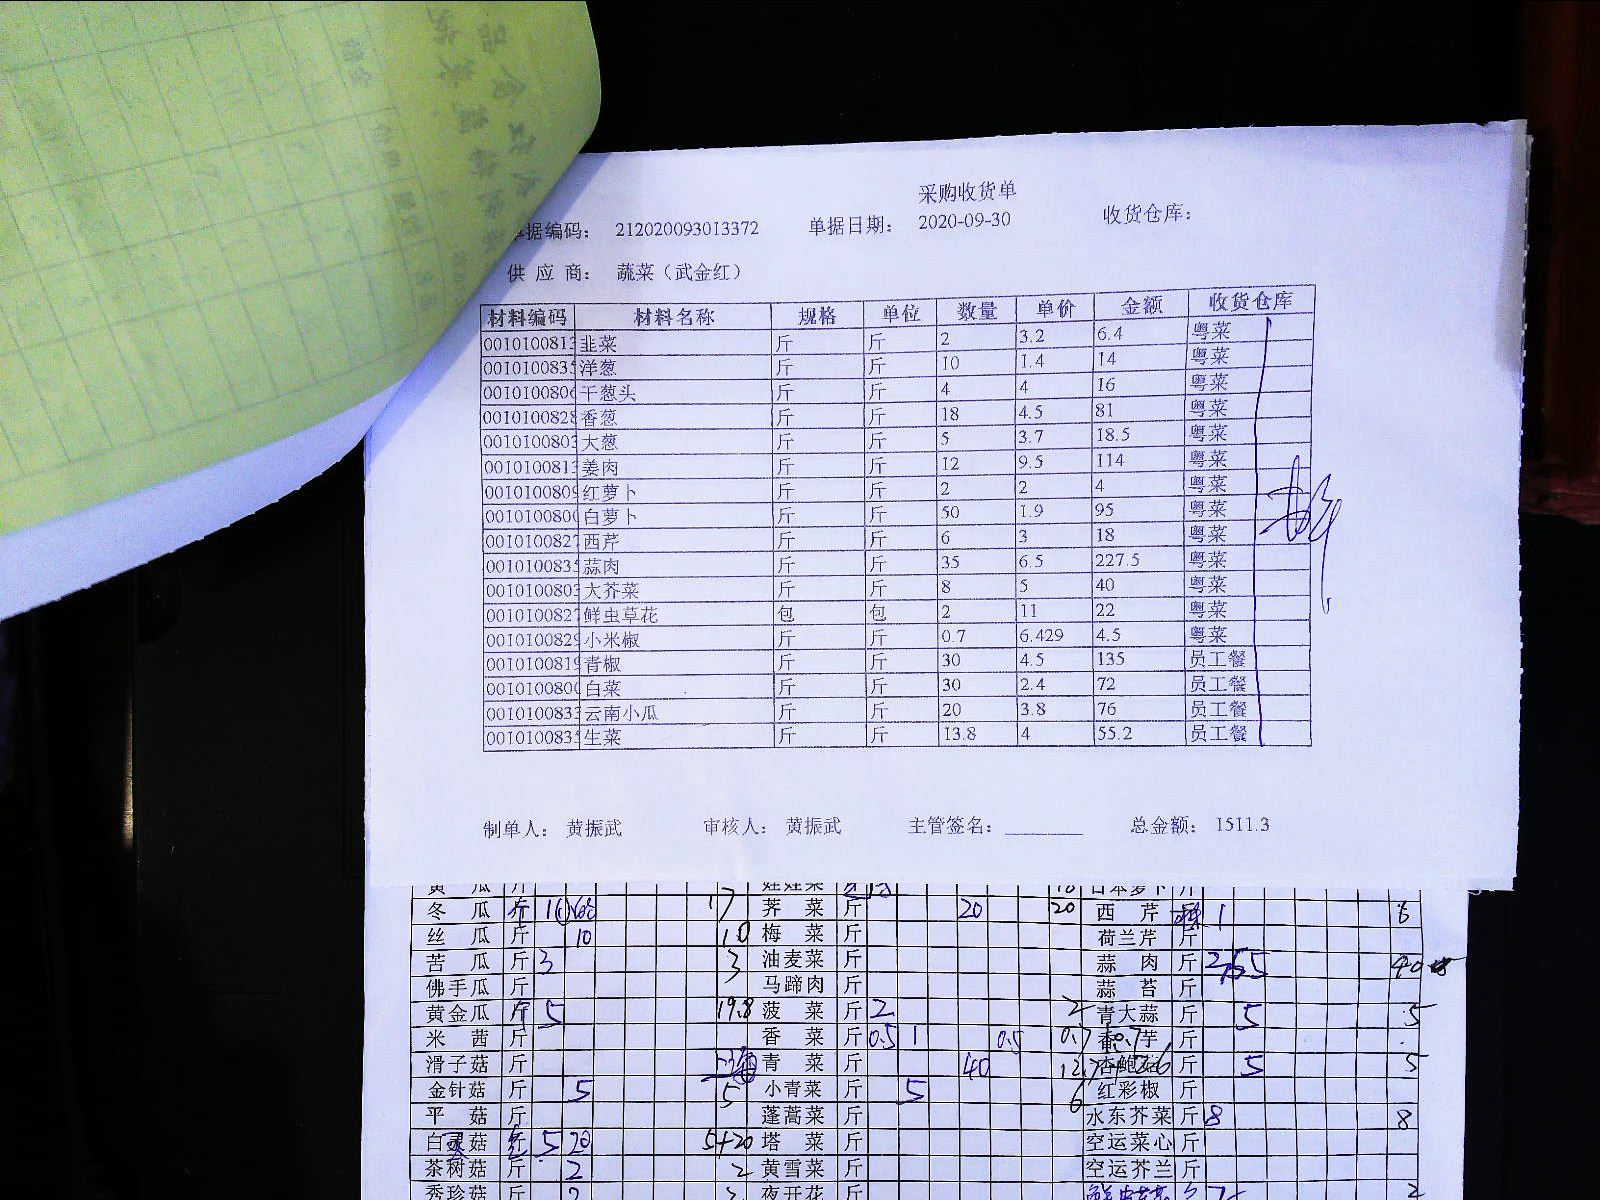 采购收货单
单据编码： 212020093013372 单据日期： 2020-09-30 收货仓库：
供 应 商： 蔬菜（武金红）
材料编码 材料名称 规格 单位 数量 单价 金额 收货仓库
0010100813 韭菜 斤 斤 2 3.2 6.4 粤菜
0010100835 洋葱 斤 斤 10 1.4 14 粤菜
0010100806 干葱头 斤 斤 4 4 16 粤菜
0010100828 香葱 斤 斤 18 4.5 81 粤菜
0010100803 大葱 斤 斤 5 3.7 18.5 粤菜
0010100813 姜肉 斤 斤 12 9.5 114 粤菜
0010100809 红萝卜 斤 斤 2 2 4 粤菜
0010100800 白萝卜 斤 斤 50 1.9 95 粤菜
0010100827 西芹 斤 斤 6 3 18 粤菜
0010100835 蒜肉 斤 斤 35 6.5 227.5 粤菜
0010100803 大芥菜 斤 斤 8 5 40 粤菜
0010100827 鲜虫草花 包 包 2 11 22 粤菜
0010100829 小米椒 斤 斤 0.7 6.429 4.5 粤菜
0010100819 青椒 斤 斤 30 4.5 135 员工餐
0010100800 白菜 斤 斤 30 2.4 72 员工餐
0010100833 云南小瓜 斤 斤 20 3.8 76 员工餐
0010100835 生菜 斤 斤 13.8 4 55.2 员工餐
制单人： 黄振武 审核人： 黄振武 主管签名： 总金额： 1511.3
黄 瓜 斤 17 娃娃菜 日本萝卜 斤
冬 瓜 荠 菜 斤 20 20 西 芹 1 6
丝 瓜 斤 10 10 梅 菜 斤 荷兰芹 斤
苦 瓜 斤 3 3 油麦菜 斤 蒜 肉 斤 40
佛手瓜 斤 马蹄肉 斤 蒜 苔 斤
黄金瓜 斤 5 19.8 菠 菜 斤 2 2 青大蒜 斤 5 5
米 茜 斤 香 菜 斤 0.5 1 0.5 0.7 芋 斤
滑子菇 斤 青 菜 斤 40 杏鲍菇 斤 5 5
金针菇 斤 5 5 小青菜 斤 5 6 红彩椒 斤
平 菇 斤 蓬蒿菜 斤 水东芥菜 斤 8 8
白 菇 5 20 5+20 塔 菜 斤 空运菜心 斤
茶树菇 斤 2 2 黄雪菜 斤 空运芥兰 斤
秀珍菇 斤 2 夜开花 斤 2